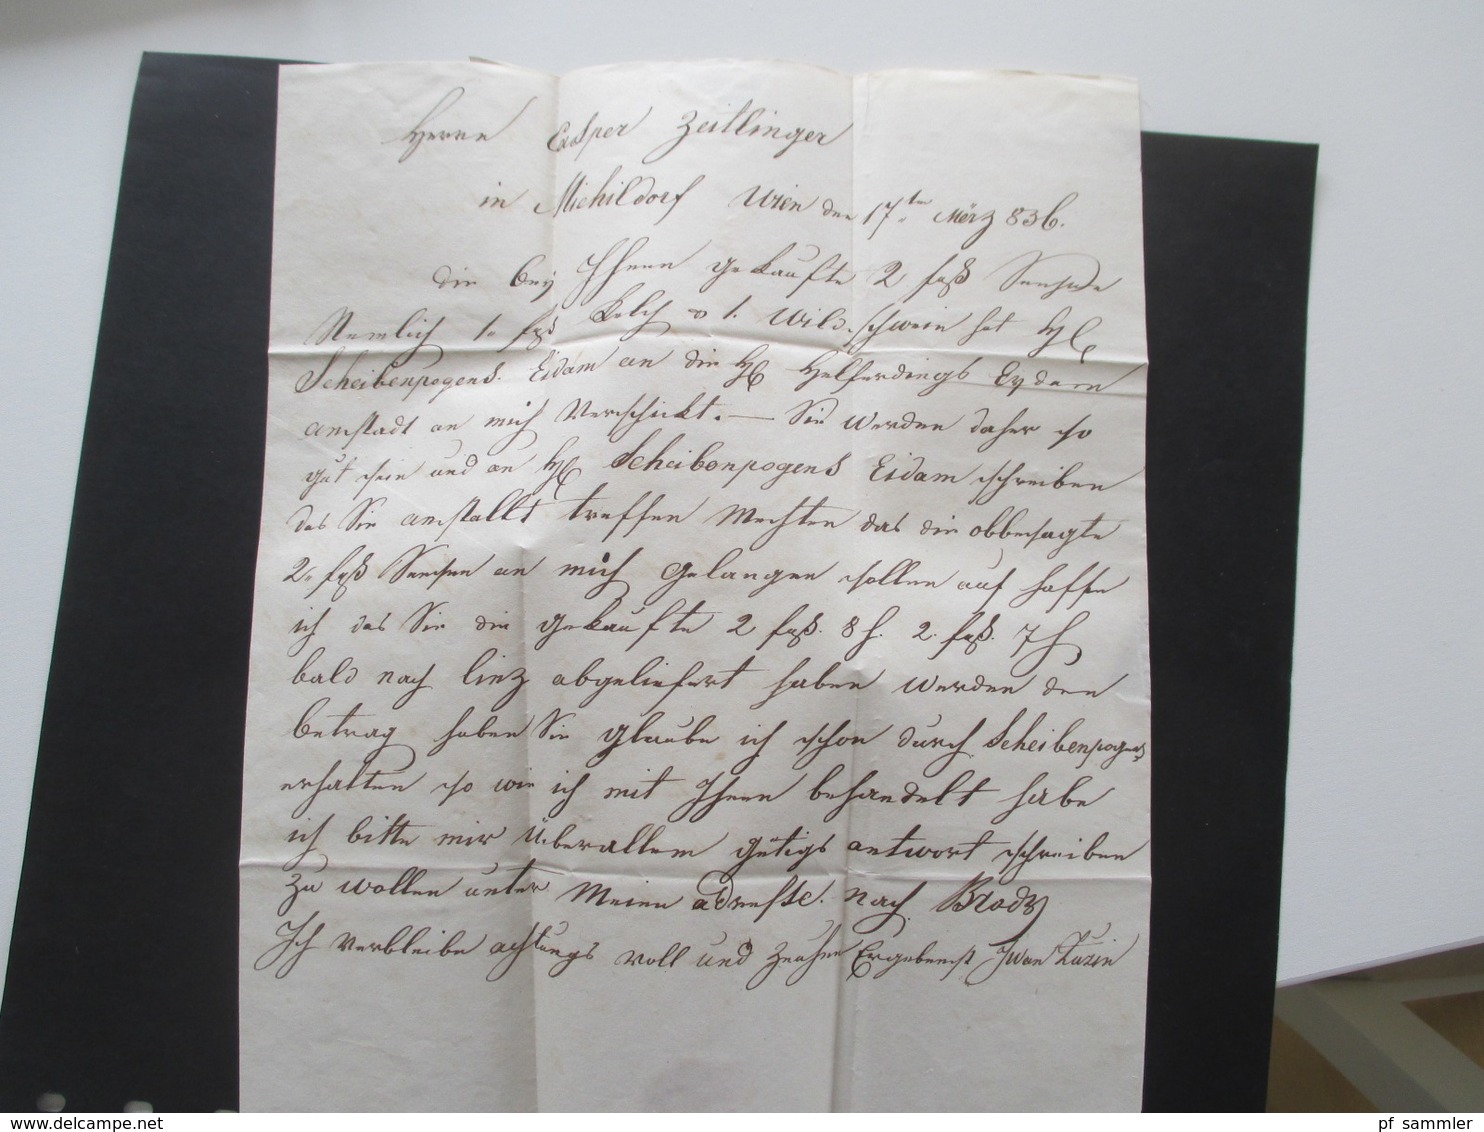 Herrn Casper Zeillinger
in Michildorf Wien den 17ten März 836.
die bey Ihnen gekaufte 2 faß Sensen
Nemlich 1. faß Kelch u 1. Wildschwein hat H
Scheibenpogens Eidam an die H Helferdings Eydam
anstadt an mich Verschickt. — Sie werden daher so
gut sein und an H Scheibenpogens Eidam schreiben
das Sie anstallt treffen Mechten das die obbesagte
2. faß Sensen an mich gelangen sollen auch hoffe
ich das Sie die gekaufte 2 faß. 8 h. 2. faß. 7 h
bald nach Linz abgeliefert haben werden den
betrag haben Sie glaube ich schon durch Scheibenpogens
erhalten so wie ich mit Ihnen behandelt habe
ich bitte mir Überallem gütigs antwort schreiben
zu wollen unter Meine adresse. nach Brody
Ich verbleibe achtungs voll und Ergebenst Iwan Kuzin
pf sammler